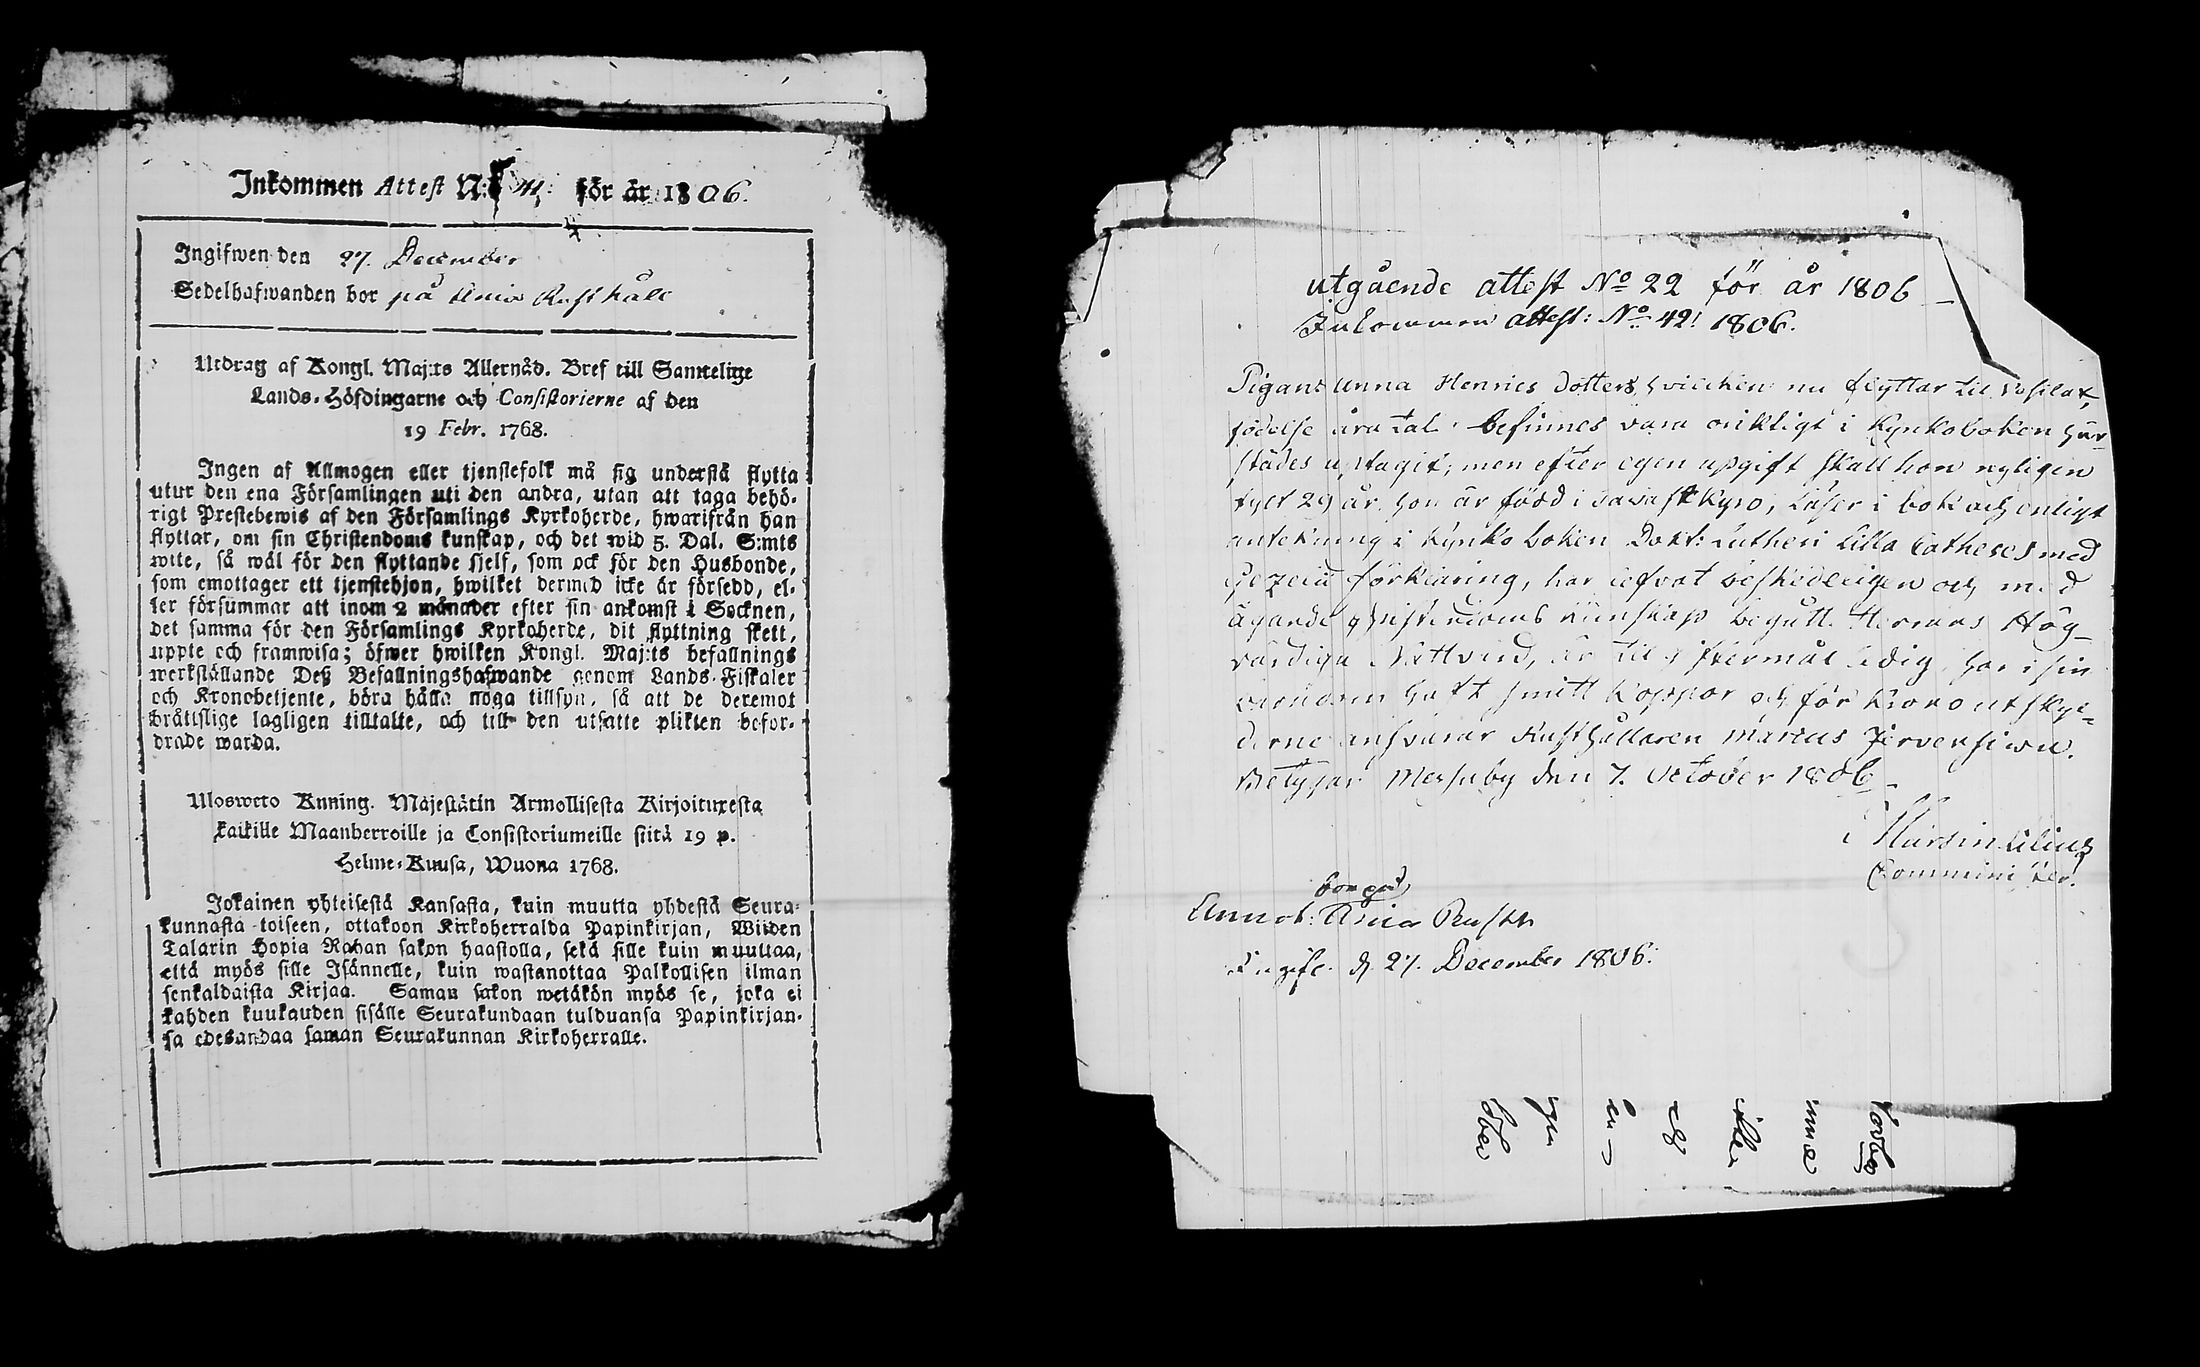 Inkommen Attest N: 41. för år 1806.
Ingifwen den 27. December
Sedelhafwanden bor på Rusthåll
Utdrag af Kongl. Maj:ts Allernåd. Bref till Samtelige
Lands-Höfdingarne och Consistorierne af den
19 Febr. 1768.
Ingen af Allmogen eller tjenstefolk må sig understå flytta
utur den ena Församlingen uti den andra, utan att taga behö-
rigt Prestebewis af den Församlings Kyrkoherde, hwarifrån han
flyttar, om sin Christendoms kunskap, och det wid 5. Dal. S:mts
wite, så wäl för den flyttande sjelf, som ock för den Husbonde,
som emottager ett tjenstehjon, hwilket dermed icke är försedd, el-
ler försummar att inom 2 månader efter sin ankomst i Socknen,
det samma för den Församlings Kyrkoherde, dit flyttning skett,
uppte och framwisa; öfwer hwilken Kongl. Maj:ts befallnings
werkställande Deß Befallningshafwande genom Lands-Fiskaler
och Kronobetjente, böra hålla noga tillsyn, så att de deremot
bråttslige lagligen tilltalte, och till den utsatte plikten befor-
drade warda.
Ulosweto Kuning. Majestätin Armollisesta Kirjoituxesta
kaikille Maanherroille ja Consistoriumeille siitä 19 p.
Helme-Kuusa, Wuona 1768.
Jokainen yhteisestä Kansasta, kuin muutta yhdestä Seura-
kunnasta toiseen, ottakoon Kirkoherralda Papinkirjan, Wiiden
Talarin Hopia Rahan sakon haastolla, sekä sille kuin muuttaa,
että myös sille Isännelle, kuin wastanottaa Palkollisen ilman
senkaldaista Kirjaa. Saman sakon wetäkön myös se, joka ei
kahden kuukauden sisälle Seurakundaan tulduansa Papinkirjan-
sa edesandaa saman Seurakunnan Kirkoherralle.
utgående attest No 22 för år 1806
Inkommen attest: No 42! 1806.
Pigan Anna Henrics Dotters, hvilcken nu flyttar til
födelse åra tal befinnes vara oriktigt i Kyrkoboken här-
städes uptagit; men efter egen upgift skall hon nyligen
fylt 29 år. hon är född i Tavastkyro, Läser i bok och enligt
antekning i Kyrko boken Dokt: Lutheri Lilla Catheches med
förklaring, har lefvat beskedeligen och med
ägande Christendoms kunskap begått Herrans Hög-
värdiga Nattvard, är til ledig, har i sin
barndom haft smitt Koppor och för Krono utskyl-
derne ansvarar Rusthållaren Marcus
Betygar den 7. October 1806
Comminister.
bor på
Annot:
Ingifv. d. 27. December 1806.